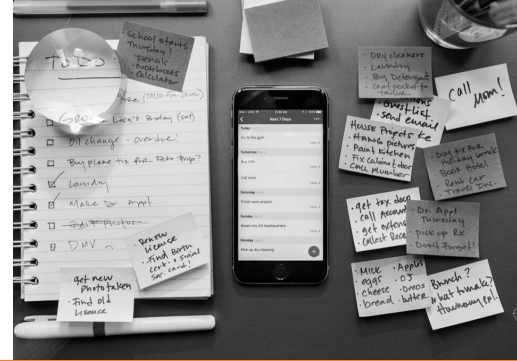 School starts
Thursday!
· Pencils
· Notebooks
· Calculator
TO DO:
Lisa's B-day (Sat)
Oil change - overdue!
Buy plane tix for Feb trip?
Laundry
Make Dr. Appt
Edit Photos
DMV
Renew
License
· Find Birth
Cert. + Social
Sec. card!
· get new
Photo taken
· Find old
Lisence
Next 7 Days
Today
Go to the gym
Tomorrow
Buy milk
Call mom
Saturday
Finish work project
Sunday
Break into E6 headquarters
Monday
Pick up dry cleaning
· Dry cleaners
· Laundry
· Buy Detergent
Guest List
send email
Call
Mom!
House Projects
· Hang pictures
· Paint Kitchen
· Fix Cabinet door
· Call Plumber
· Buy tix for
Holiday
· Book Hotel
· Rent Car
Travel Ins.
· get tax docs
· call
· get
· Collect
Dr. Appt
Thursday
pick up Rx
Don't Forget!
Milk
eggs
cheese
bread
· Apples
· OJ
· Oreos
· butter
Brunch?
what to make?